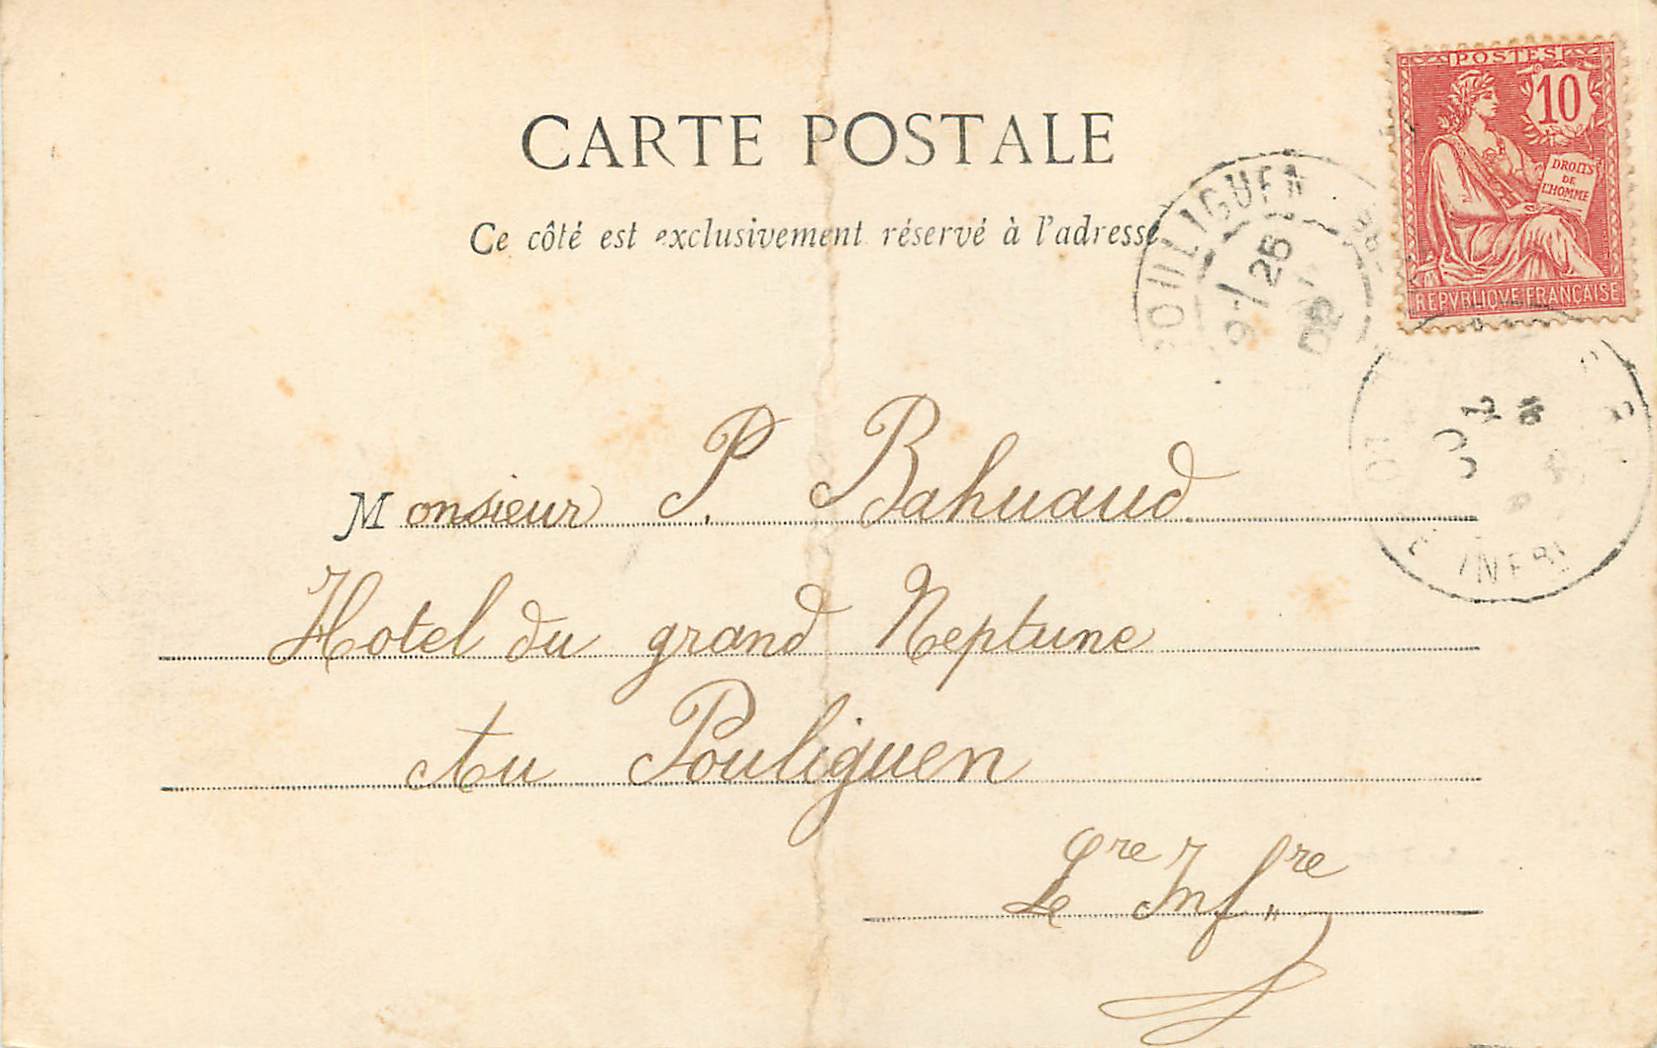 CARTE POSTALE
Ce côté est exclusivement réservé à l'adresse
POSTES
10
DROITS
DE
L'HOMME
REPVBLIQVE FRANCAISE
POULIGUEN
25
Monsieur P. Bahuaud
Hotel du grand Neptune
Au Pouliguen
Lre Infre